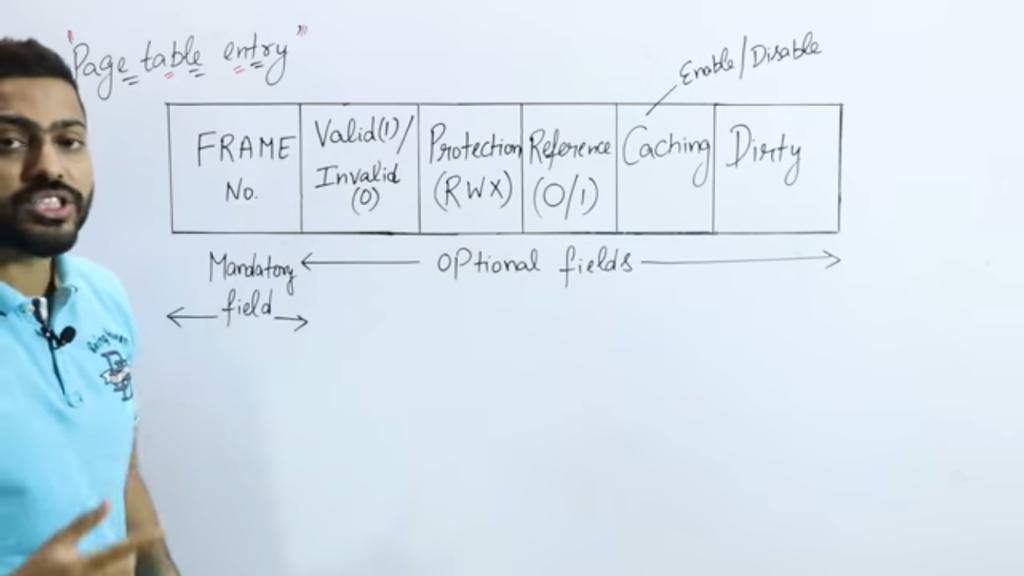 "Page table entry"
Enable/Disable
FRAME No.
Valid(1)/
Invalid
(0)
Protection
(RWX)
Reference
(0/1)
Caching
Dirty
Mandatory
field
optional fields